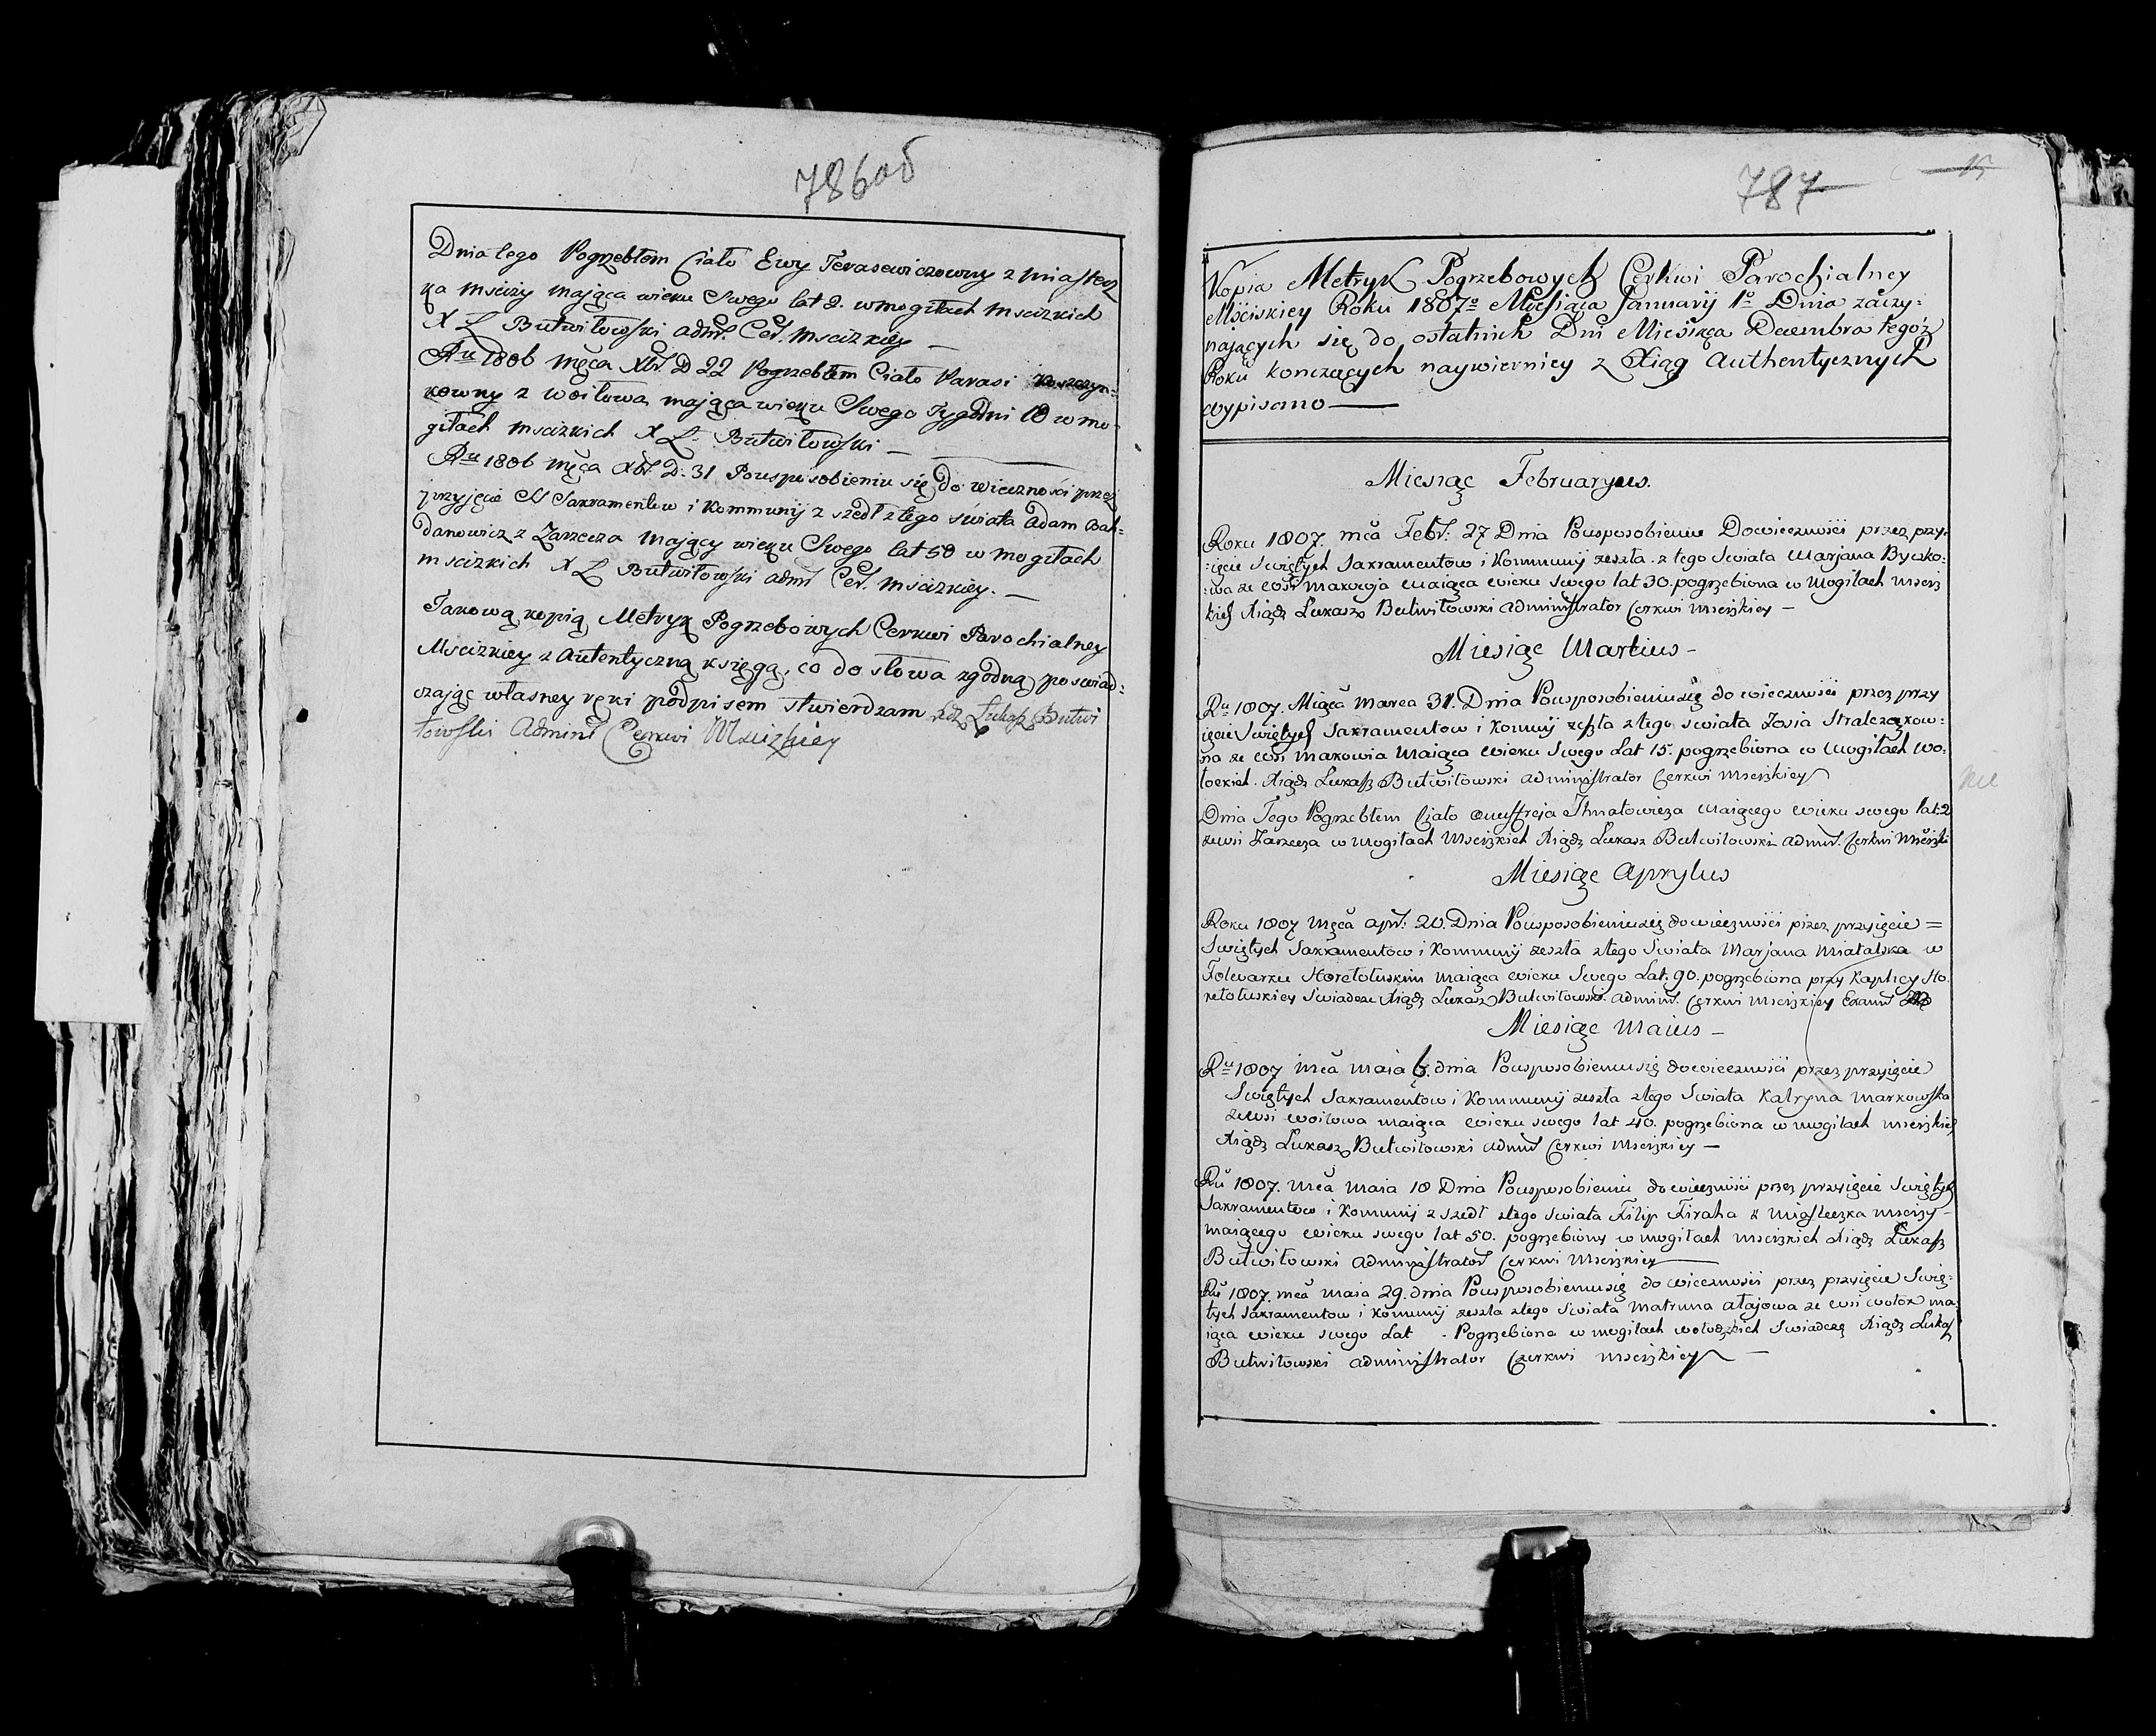 786об
Dnia tego Pogrzebłem Ciało Ewy Terasewiczowny z Miastecz
ka Mscizy mająca wieku Swego lat 2. w mogiłach Mscizkich
X Ł Butwiłowski Admr. Cer. Mscizkiey —
Ru 1806 Mśca Xbr. D 22 Pogrzebłem Ciało Parasi
kowny z Woiłowa mająca wieku Swego Tygodni 10 w mo-
giłach Mscizkich X Ł. Butwiłowski —
Ru 1806 Mśca Xbr. D. 31 Po uspisobieniu się do wieczności przez
przyjęcie SS Sakramentow i Kommunij z szedł z tego świata Adam Boh-
danowicz z Zarzecza Mający wieku Swego lat 50 w mogiłach
Mscizkich X Ł Butwiłowski Admr Cer. Mscizkiey. —
Takową kopią Metryk Pogrzebowych Cerkwi Parochialney
Mscizkiey z Autentyczną księgą, co do słowa zgodną poswiad-
czając własney ręki podpisem stwierdzam Xdz Łukasz Butwi
łowski Admint Cerkwi Mscizkiey
787
15
Kopia Metryk Pogrzebowych Cerkwi Parochialney
Mściskiey Roku 1807o Miesiąca Januarij 1o Dnia zaczy-
nających się do ostatnich Dni Miesiąca Decembra tegóż
Roku konczących naywierniey z Xiąg Authentycznych
wypisano —
Miesiąc Februaryus.
Roku 1807. mca Febr: 27 Dnia Po usposobieniu Do wieczności przez przy-
ięcie Swiętych Sakramentow i Kommunij zeszła z tego Swiata Marjana Byczko-
wa ze wsi Makowja maiąca wieku Swego lat 30. pogrzebiona w Mogiłach Mscis
kich Xiądz Łukasz Butwiłowski administrator Cerkwi Mscizkiey —
Miesiąc Martius —
Ru 1807. Miąca Marca 31. Dnia Po usposobieniu się do wieczności przez przy
ięcie Swiętych Sakramentow i Komunij zeszła z tego Swiata Zosia Stralczukow-
na ze wsi Makowia Maiąca wieku Swego Lat 15. pogrzebiona w Mogiłach Wo-
łockich. Xiądz Łukasz Butwiłowski administrator Cerkwi Mscizkiey
Dnia Tego Pogrzebłem Ciało Onuffreja Ihnatowicza maiącego wieku swego lat: 2
ze wsi Zarzecza w mogiłach Mscizkich Xiądz Łukasz Butwiłowski admr. Cerkwi Mscizki
Miesiąc Aprylus
Roku 1807 Mśca apr: 20. Dnia Po usposobieniu się do wieczności przez przyięcie =
Swiętych Sakramentow i Kommunij zeszła z tego Swiata Marjana Miatalska w
Folwarku maiąca wieku Swego Lat. 90. pogrzebiona przy Kaplicy
Swiadcze Xiądz Łukasz Butwiłowski. admint. Cerkwi Mscizkiey
Miesiąc Maius —
Ru 1807 mca maia 6. dnia Po usposobieniu się do wieczności przez przyięcie
Swiętych Sakramentow i Kommunij zeszła z tego Swiata Katryna Markowska
ze wsi Woiłowa maiąca wieku swego lat 40. pogrzebiona w mogiłach Mscizkich
Xiądz Łukasz Butwiłowski admr Cerkwi Mscizkiey —
Ru 1807. mca maia 18 Dnia Po usposobieniu do wieczności przez przyięcie Swiętych
Sakramentow i Komunij z szedł z tego swiata Filip Firaha z Miasteczka Mscizy
maiącego wieku swego lat 50. pogrzebiony w mogiłach Mscizkich Xiądz Łukasz
Butwiłowski administrator Cerkwi Mscizkiey
Ru 1807. mca maia 29. dnia Po usposobieniu się do wieczności przez przyięcie Swię-
tych Sakramentow i Komunij zeszła z tego Swiata Matruna Ałajowa ze wsi Wołok ma
iąca wieku swego Lat . Pogrzebiona w mogiłach Wołockich Swiadczę Xiądz Łukasz
Butwiłowski administrator Czerkwi Mscizkiey —